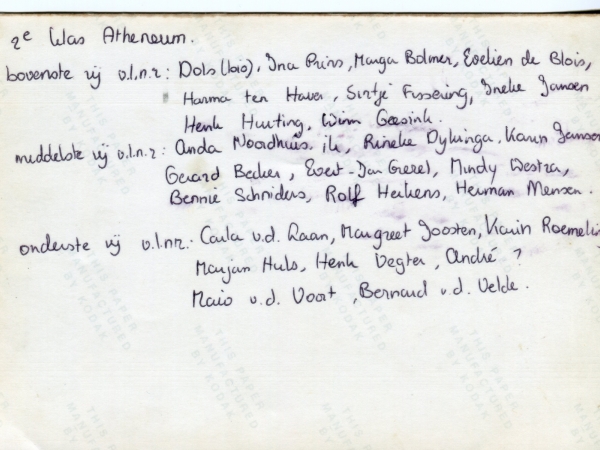 2e klas Atheneum.
bovenste rij v.l.n.r: Dols (bio), Ina Prins, Marga Bolmer, Evelien de Blois,
Harma ten Haver, Sietje Fissering, Ineke Jansen
Henk Hurting, Wim Geesink.
middelste rij v.l.n.r: Anda Noordhuis, ik, Rineke Dykinga, Karin Jansen
Gerard Becker, Evert-Jan Grevel, Mindy Westra,
Bennie Schniders, Rolf Heikens, Herman Mensen.
onderste rij v.l.n.r.: Carla v.d. Laan, Margreet Joosten, Karin Roemeling
Marjan Huls, Henk Vegter, André ?
Mario v.d. Voort, Bernard v.d. Velde.
THIS PAPER
MANUFACTURED
BY KODAK